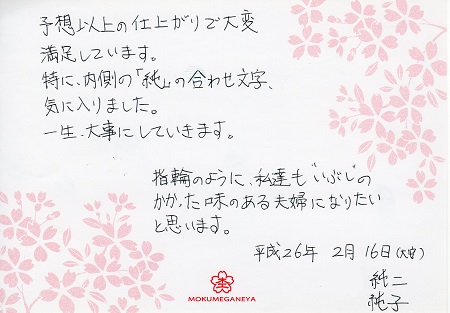 予想以上の仕上がりで大変
満足しています。
特に、内側の「純」の合わせ文字、
気に入りました。
一生、大事にしていきます。
指輪のように、私達も"いぶし"の
かかった味のある夫婦になりたい
と思います。
平成26年 2月 16日(大安)
純二
純子
MOKUMEGANEYA